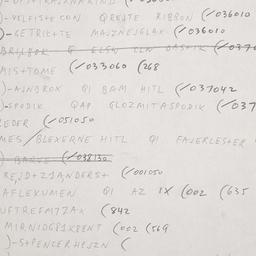 )-VELFIS+E CON QREJTE RIBBON (/036010
)-GETRIK+TE MAJZNEJGLAX (/036010
MIS+TOME (/033060 (268
)-AJNBROK QI BAM HITL (/037042
)-SPODIK QAP GLOZMITASPODIK (/037
LEDER (/051050
MES/BLEXERNE HITL QI FAJERLES+ER
) BARVE (/038130
REJD+Z1ANDERS+ (/001050
AFLEKUMEN QI AZ 1X (002 (635
UFTREFM77AX (842
MIRNIDGP1X8ENT (002 (569
)-S+PENCERHEJZN (